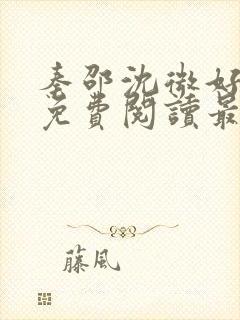 秦邵沈微好
免費閱讀最
藤風